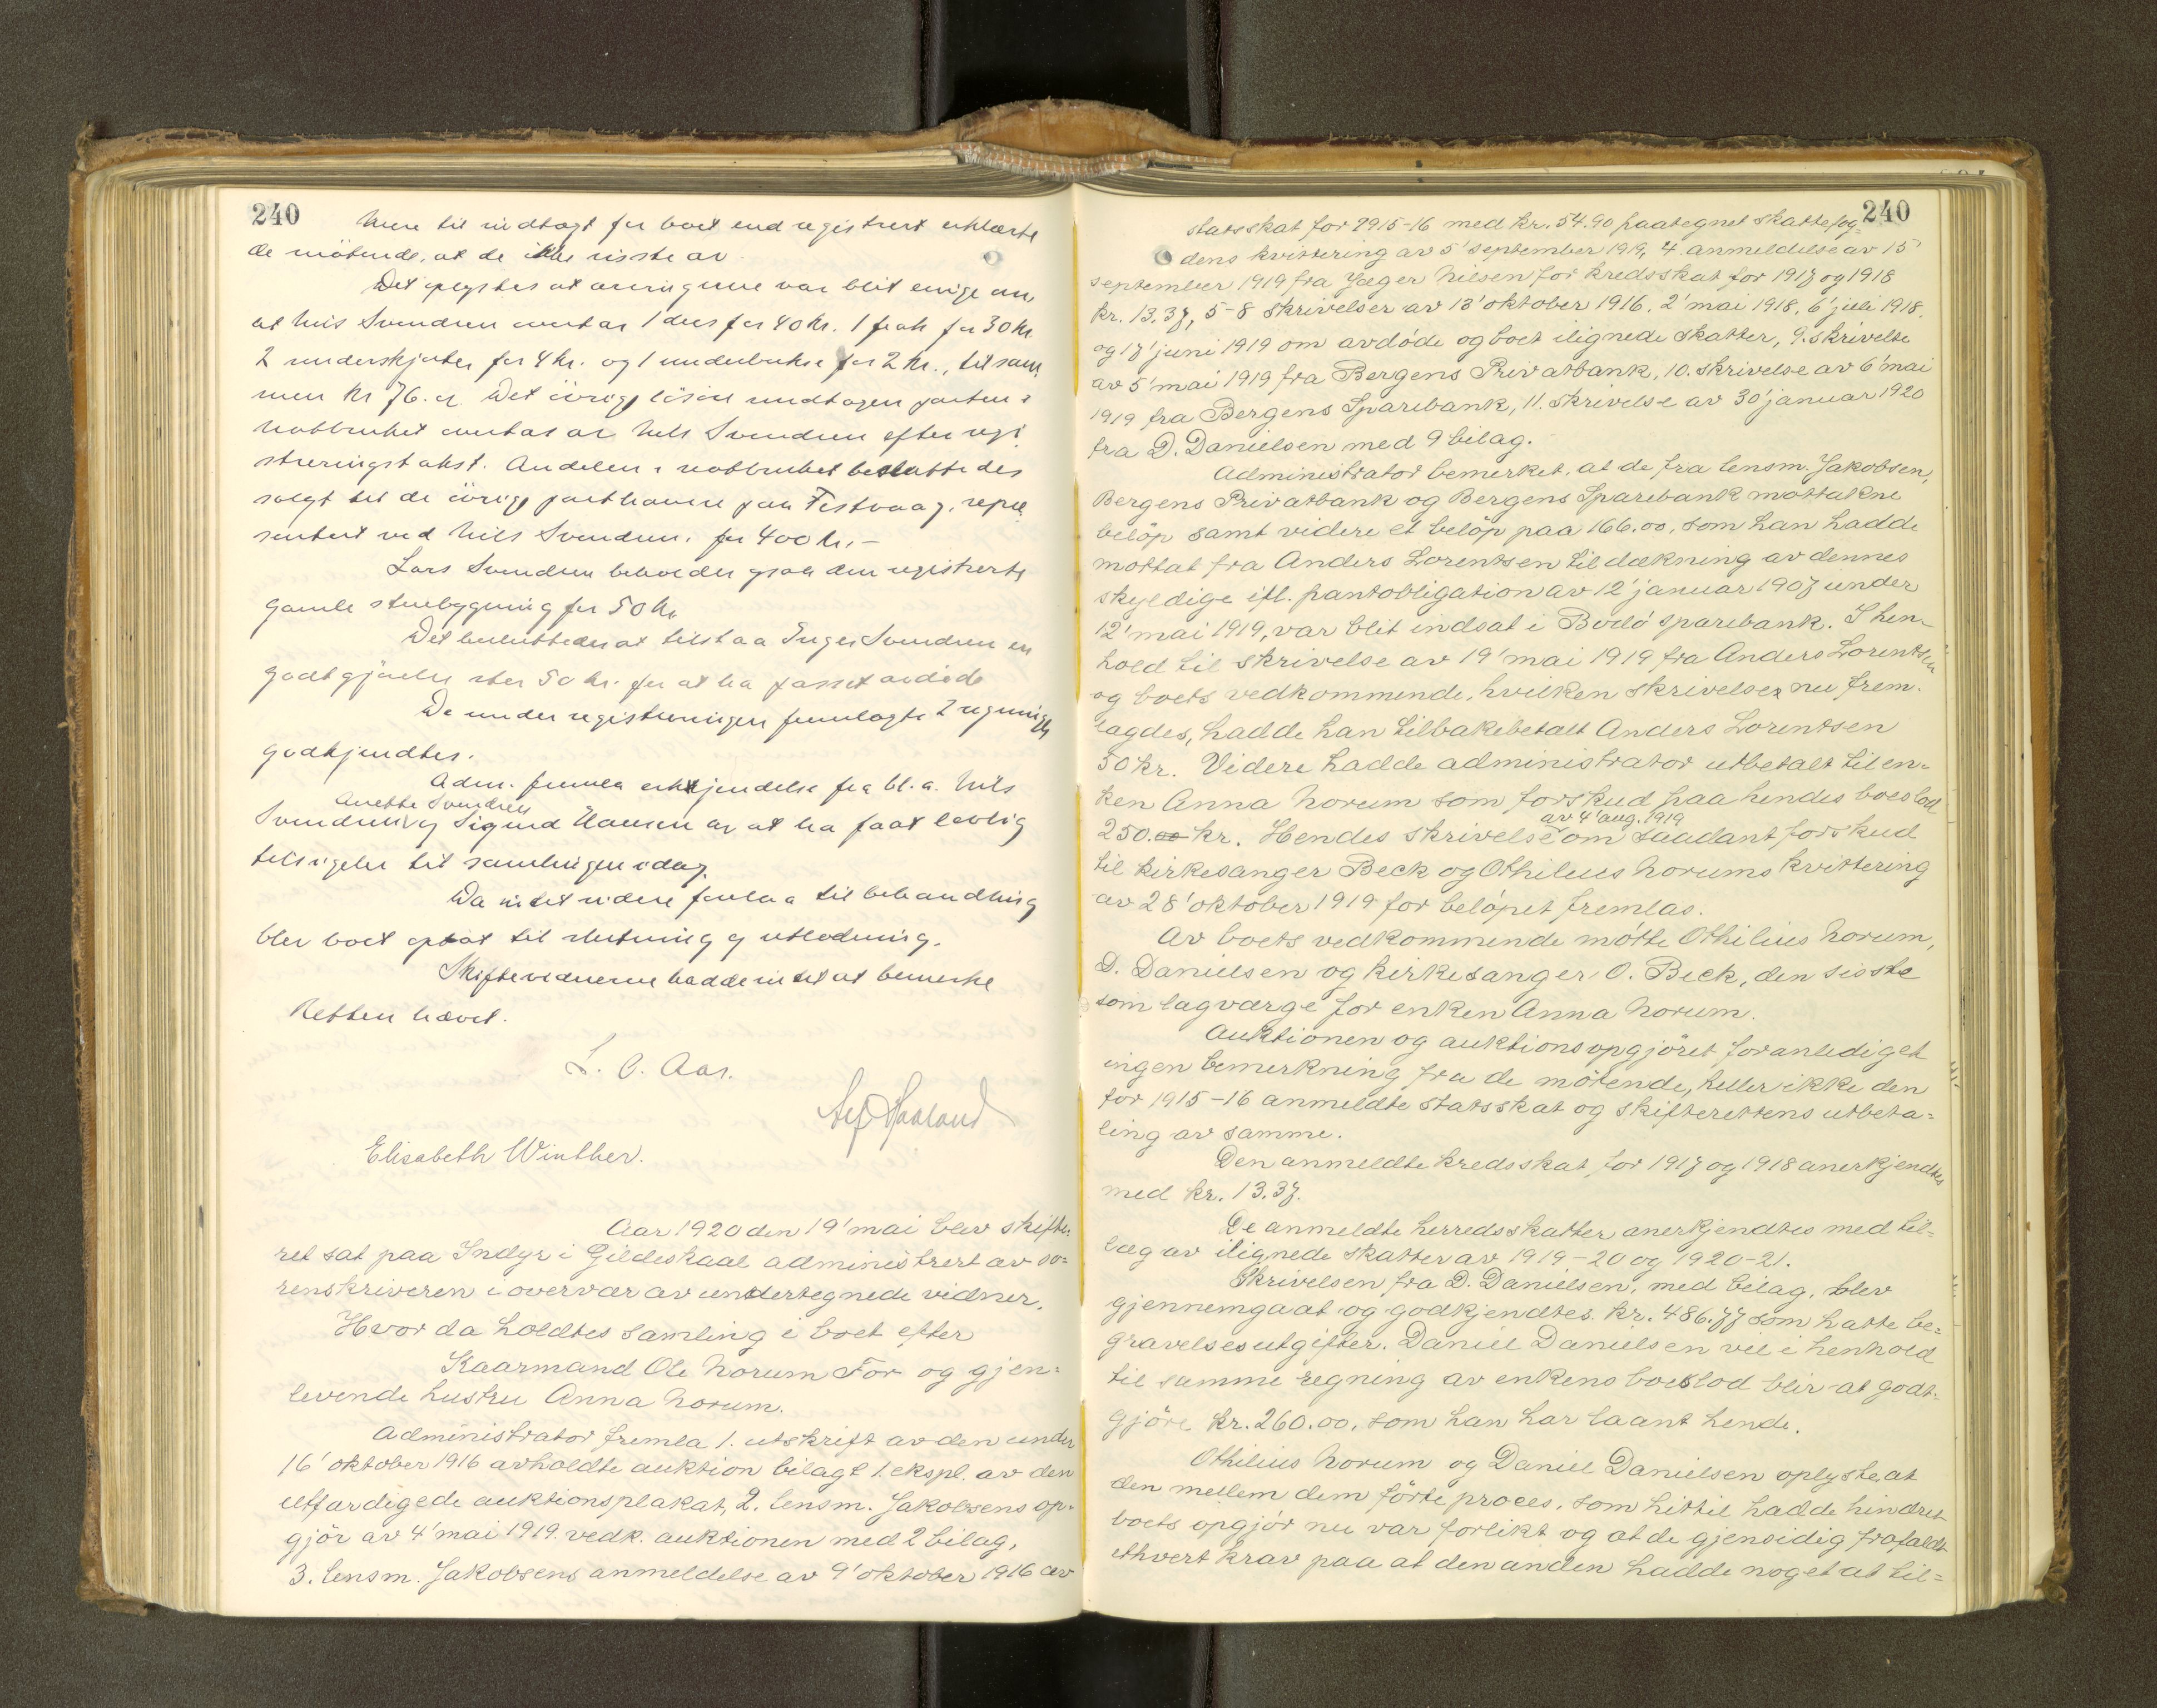 240
Mere til indtægt for boet end registrert erklærte
de mötende, at de ikke visste av.
Det oplystes at arvingerne var blit enige om,
at Nils Svendsen overtar 1 dres for 40 kr. 1 frak for 30 kr.
2 underskjorter for 4 kr. og 1 underbukse for 2 kr., tilsam
men kr 76. Det övrige lösöre undtagen parten i
notbruket overtas av Nils Svendsen efter regi
streringstakst. Andelen i notbruket besluttedes
solgt til de övrige parthavere paa Festvaag, repræ
sentert ved Nils Svendsen, for 400 kr. -
Lars Svendsen beholder ogsaa den registrerte
gamle stuebygning for 50 kr.
Det besluttedes at tilstaa Inger Svendsen en
godtgjörelse stor 50 kr. for at ha passet avdöde
De under registreringen fremlagte 2 regninger
godkjendtes.
Adm. fremla erkjendelse fra bl. a. Nils
Anette Svendsen
Svendsen og Sigurd Hansen av at ha faat lovlig
tilsigelse til samlingen idag.
Da intet videre forelaa til behandling
blev boet optat til slutning og utlodning.
Skiftevidnerne hadde intet at bemerke
Retten hævet.
L. C. Aas.
Elisabeth Winther.
Aar 1920 den 19' mai blev skifte-
ret sat paa Indyr i Gildeskaal administrert av so-
renskriveren i overvær av undertegnede vidner.
Hvor da holdtes samling i boet efter
Kaarmand Ole Norum För og gjen-
levende hustru Anna Norum.
Administrator fremla 1. utskrift av den under
16' oktober 1916 avholdte auktion bilagt 1. ekspl. av den
utfærdigede auktionsplakat, 2. lensm. Jakobsens op-
gjör av 4' mai 1919. vedk. auktionen med 2 bilag,
3. lensm. Jakobsens anmeldelse av 9' oktober 1916 av
240
statsskat for 1915-16 med kr. 54.90 paategnet skattefog-
dens kvittering av 5' september 1919, 4 anmeldelse av 15'
september 1919 fra Jæger Nilsen for kredsskat for 1917 og 1918
kr. 13.37, 5-8 skrivelser av 13' oktober 1916. 2' mai 1918, 6' juli 1918.
og 17' juni 1919 om avdöde og boet ilignede skatter, 9. skrivelse
av 5' mai 1919 fra Bergens Privatbank, 10. skrivelse av 6' mai
1919 fra Bergens Sparebank, 11. skrivelse av 30' januar 1920
fra D. Danielsen med 9 bilag.
Administrator bemerket, at de fra lensm. Jakobsen,
Bergens Privatbank og Bergens Sparebank mottakne
belöp samt videre et belöp paa 166.00, som han hadde
mottat fra Anders Lorentsen til dækning av dennes
skyldige ifl. pantobligation av 12' januar 1907 under
12' mai 1919, var blit indsat i Bodö sparebank. I hen-
hold til skrivelse av 19' mai 1919 fra Anders Lorentsen
og boets vedkommende, hvilken skrivelse nu frem-
lagdes, hadde han tilbakebetalt Anders Lorentsen
50 kr. Videre hadde administrator utbetalt til en-
ken Anna Norum som forskud paa hendes boeslod
av 4' aug. 1919
250.00 kr. Hendes skrivelse om saadant forskud
til kirkesanger Beck og Othilius Norums kvittering
av 28' oktober 1919 for belöpet fremlas.
Av boets vedkommende mötte Othilius Norum,
D. Danielsen og kirkesanger O. Beck, den sisste
som lagværge for enken Anna Norum.
Auktionen og auktionsopgjöret foranlediget
ingen bemerkning fra de mötende, heller ikke den
for 1915-16 anmeldte statsskat og skifterettens utbeta-
ling av samme.
Den anmeldte kredsskat for 1917 og 1918 anerkjendtes
med kr. 13.37.
De anmeldte herredsskatter anerkjendtes med til-
læg av ilignede skatter av 1919-20 og 1920-21.
Skrivelsen fra D. Danielsen, med bilag, blev
gjennemgaat og godkjendtes kr. 486.77 som hatte be-
gravelsesutgifter. Daniel Danielsen vil i henhold
til samme regning av enkens boeslod blir at godt-
gjöre kr. 260.00, som han har laant hende.
Othilius Norum og Daniel Danielsen oplyste, at
den mellem dem förte proces, som hittil hadde hindret
boets opgjör nu var forlikt og at de gjensidig frafaldt
ethvert krav paa at den anden hadde noget at til-